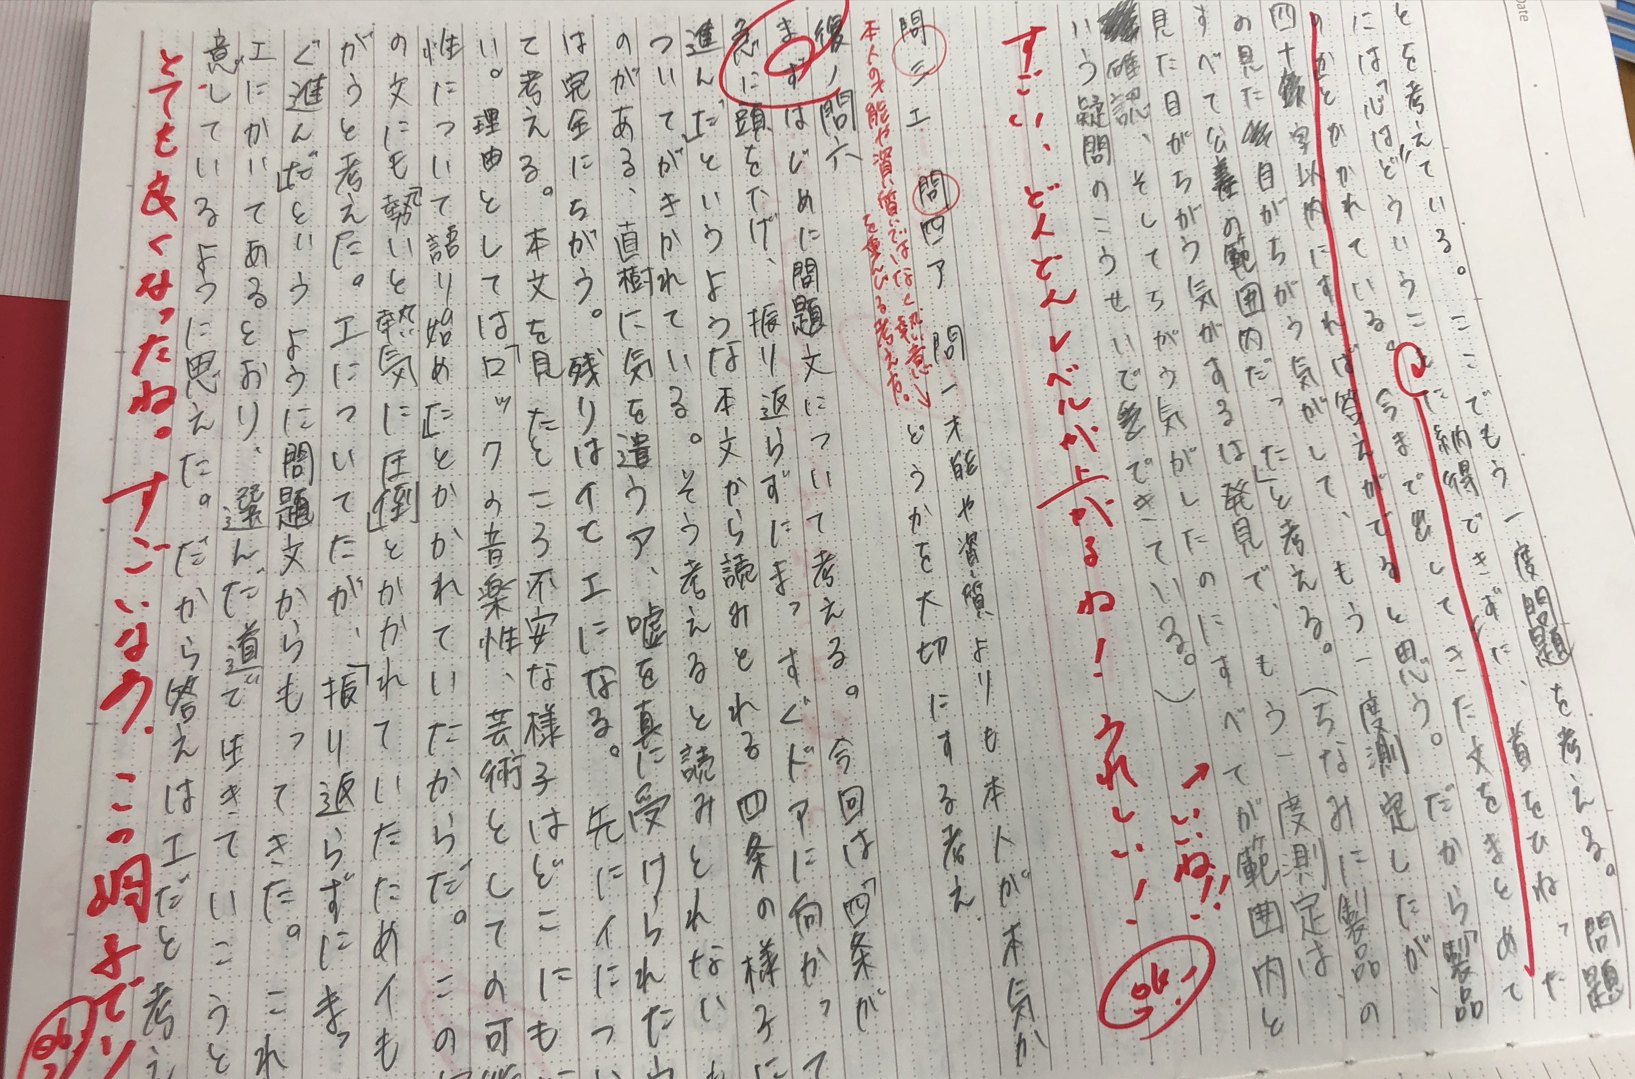 とを考えている。ここでもう一度問題を考える。問題
には「心はどういうことに納得できずに、首をひねった
のかとかかれている。今までもしてきた文をまとめて
四十字以内にすれば答えがでると思う。だから「製品
の見た目がちがう気がして、もう一度測定したが、
すべて公差の範囲内だった」と考える。(ちなみに製品の
見た目がちがう気がするは発見で、もう一度測定は、
確認、そしてちがう気がしたのにすべてが範囲内と
いう疑問のこうせいでできている。)
いいね!!
すごい、どんどんレベルが上がるね!うれしい!
ok!
問三エ 問四ア 問一才能や資質よりも本人が本気か
どうかを大切にする考え
本人の才能や資質ではなく熱意を重んじる考え方。
後ノ問六
まずはじめに問題文について考える。今回は「四条が
急に頭を下げ、振り返らずにまっすぐドアに向かって
進んだ」というような本文から読みとれる四条の様子に
ついてがきかれている。そう考えると読みとれない
のがある、直樹に気を遣うア、嘘を真に受けられたウ
は完全にちがう。残りはイとエになる。先にイにつ
て考える。本文を見たところ不安な様子はどこにも
い。理由としては「ロックの音楽性、芸術としての可
性について語り始めた」とかかれていたからだ。この
の文にも「勢いと熱気に圧倒」とかかれていたためイも
がうと考えた。エについてたが、「振り返らずにまっ
ぐ進んだ」というように問題文からもってきた。これ
エにかいてあるとおり、選んだ道で生きていこうと
意しているように思えた。だから答えはエだと考え
とても良くなったね。すごいなぁ。この調子でい
ok